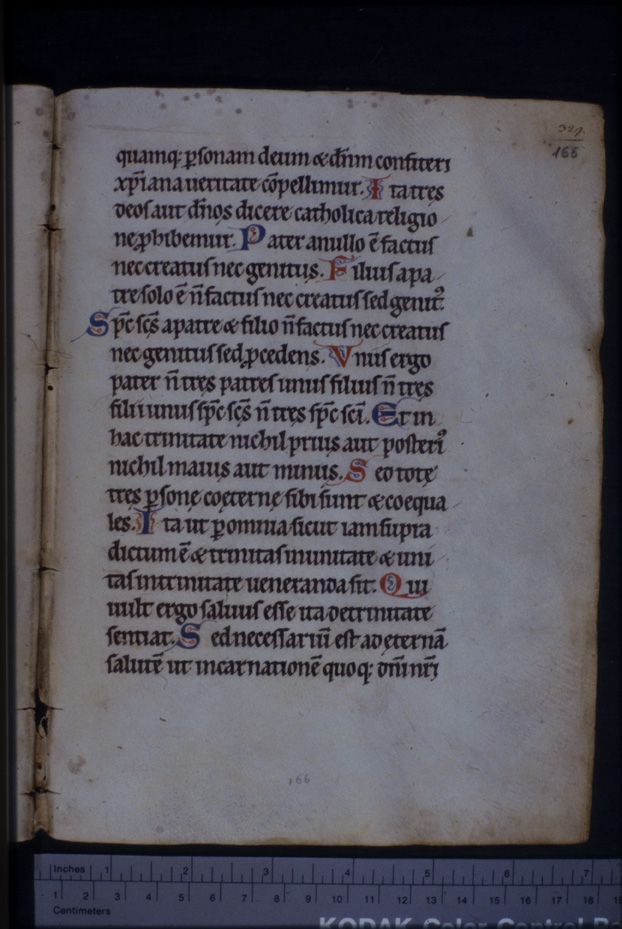 327.
166
quamq; ꝑsonam deum & dn̄m confiteri
xp̄iana ueritate cōpellimur. Ita tres
deos aut dn̄os dicere catholica religio
ne ꝓhibemur. Pater a nullo ē factus
nec creatus nec genitus. Filius a pa
tre solo ē n̄ factus nec creatus sed genitꝰ.
Sp̄c sc̄s a patre & filio n̄ factus nec creatus
nec genitus sed ꝓcedens. Vnus ergo
pater n̄ tres patres unus filius n̄ tres
filii unus sp̄c sc̄s n̄ tres sp̄c sc̄i. Et in
hac trinitate nichil prius aut posteriꝰ
nichil maius aut minus. Sed totę
tres ꝑsonę coęternę sibi sunt & coequa
les. Ita ut ꝑ omnia sicut iam supra
dictum ē & trinitas in unitate & uni
tas in trinitate ueneranda sit. Qui
uult ergo saluus esse ita de trinitate
sentiat. Sed necessariū est ad ęternā
salutē ut incarnationē quoq; dn̄i nr̄i
166
Inches 1 2 3 4 5 6 7
1 2 3 4 5 6 7 8 9 10 11 12 13 14 15 16 17 18 19
Centimeters
KODAK Color Control